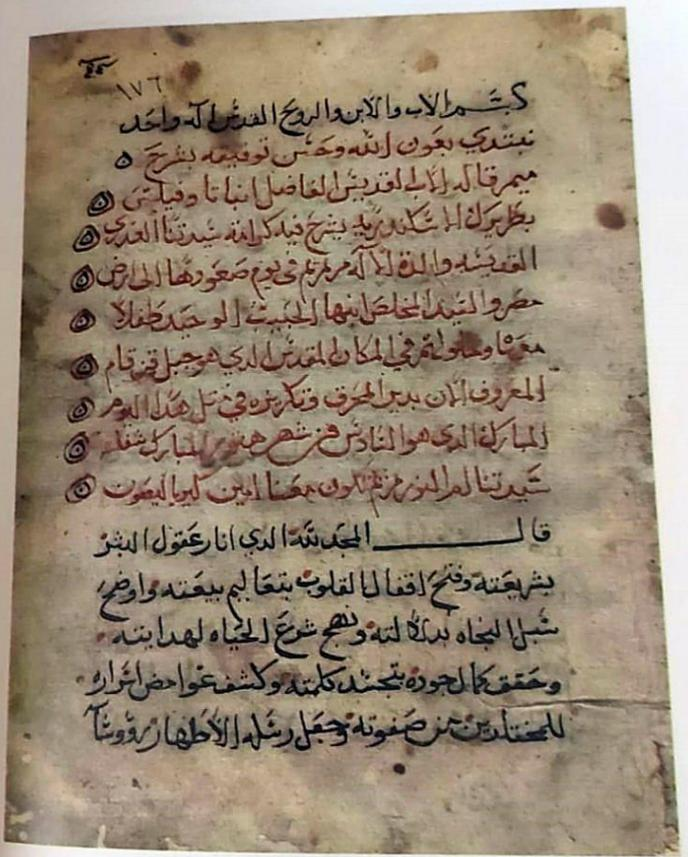 ١٧٦
بسم الاب والابن والروح القدس اله واحد
نبتدي بعون الله وحسن توفيقه بشرح
ميمر قاله الاب القديس الفاضل انبا تاوفيلس
بطريرك الاسكندريه يشرح فيه كرامة سيدتنا العدري
القديسه والدة الاله مرتمريم في يوم صعودها الى ارض
مصر والسيد المخلص ابنها الحبيب الوحيد طفلا
معها وحلولهم في المكان المقدس الدي هو جبل قزقام
المعروف الان بدير المحرق وتكريزه في مثل هدا اليوم
المبارك الدي هو السادس من شهر هتور المبارك شفاعة
سيدتنا ام النور مرتمريم تكون معنا امين كيرياليصون
قال المجد لله الدي انار عقول البشر
بشريعته وفتح اقفال القلوب بتعاليم بيعته واوضح
سبل النجاه بدلالته ونهج شرع الحياه لهدايته
وحقق كمال جوده بتجسد كلمته وكشف غوامض اسراره
للمختارين من صفوته وجعل رسله الاطهار رووسآ